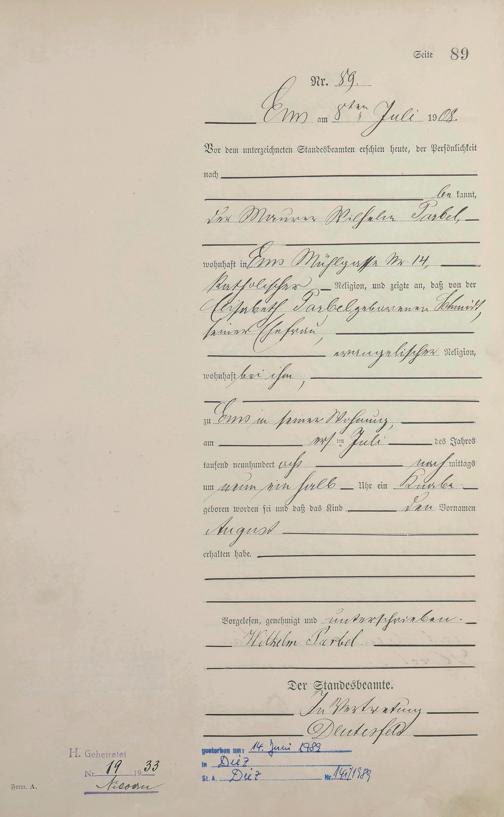 Seite 89
Nr. 89.
Ems am 8ten Juli 1908.
Vor dem unterzeichneten Standesbeamten erschien heute, der Persönlichkeit
nach
be kannt,
der Maurer Wilhelm
wohnhaft in Ems Mühlgasse Nr 14,
katholischer Religion, und zeigte an, daß von der
Elisabeth geborenen Schmidt,
seiner Ehefrau,
evangelischer Religion,
wohnhaft bei ihm,
zu Ems in seiner Wohnung,
am ersten Juli des Jahres
tausend neunhundert acht nach mittags
um neun ein halb Uhr ein Knabe
geboren worden sei und daß das Kind den Vornamen
August
erhalten habe.
Vorgelesen, genehmigt und unterschrieben.
Wilhelm
Der Standesbeamte.
In Vertretung
H. Geheiratet
Nr. 19 1933
gestorben am: 14. Juni 1989
in Diez
St. A. Diez Nr. /1989
Form. A.